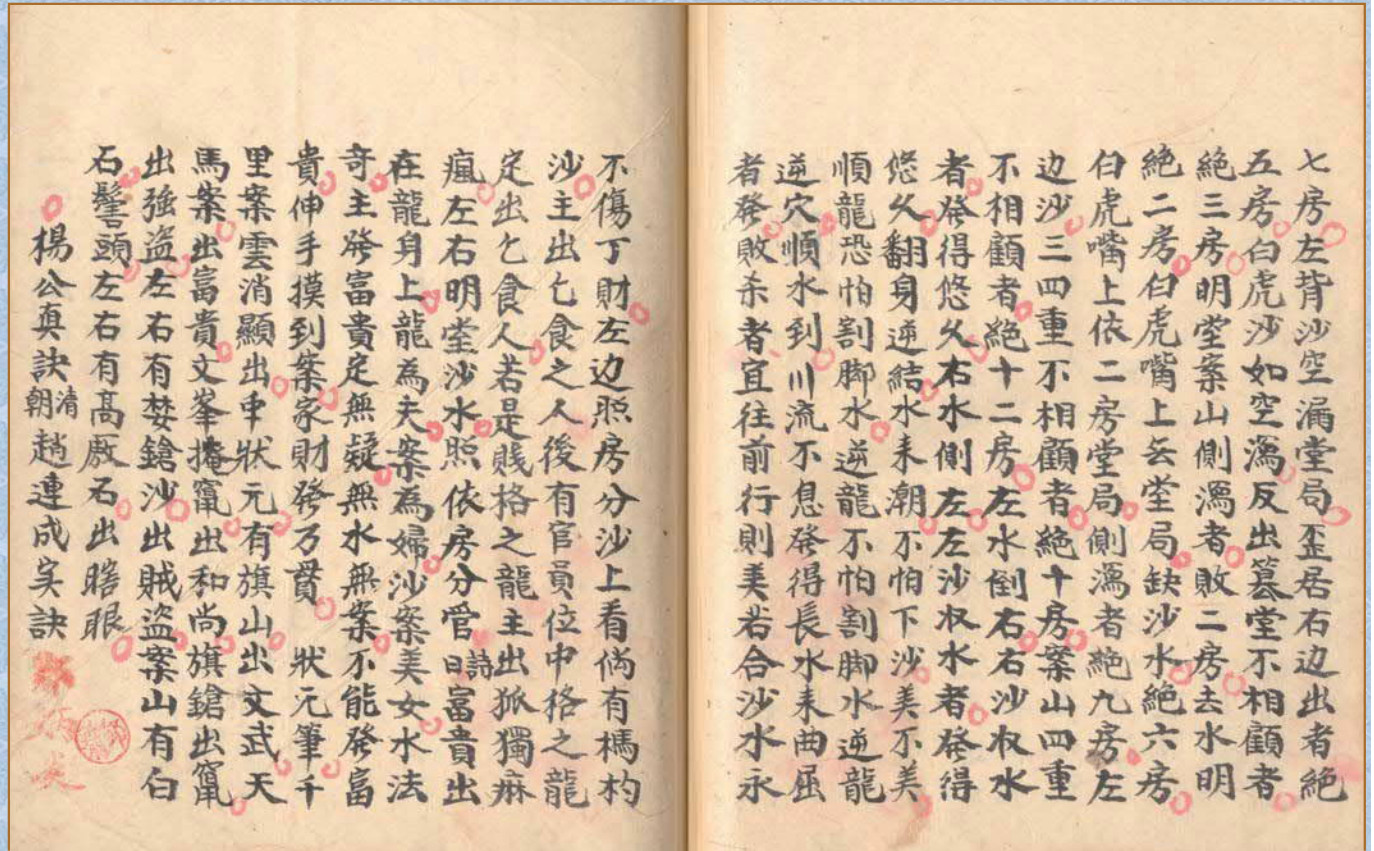 七房左背沙空漏堂局歪居右边出者絶
五房白虎沙如空㵼反出墓堂不相顧者
絶三房明堂案山側㵼者敗二房去水明
絶二房白虎嘴上無堂局缺沙水絶六房
白虎嘴上依二房堂局側㵼者絶九房左
边沙三四重不相顧者絶十房案山四重
不相顧者絶十二房左水倒右右沙收水
者發得悠久右水倒左左沙收水者發得
悠久翻身逆結水来潮不怕下沙美不美
順龍恐怕割脚水逆龍不怕割脚水逆龍
逆穴順水到川流不息發得長水来曲屈
者發敗杀者宜往前行則美若合沙水永
不傷丁財左边照房分沙上看倘有榪杓
沙主出乞食之人後有官員位中格之龍
定出乞食人若是賤格之龍主出孤獨麻
瘋左右明堂沙水照依房分管詩曰富貴出
在龍身上龍為夫案為婦沙案美女水法
奇主發富貴定無疑無水無案不能發富
貴伸手摸到案家財發万貫 狀元筆千
里案雲消顯出中狀元有旗山出文武天
馬案出富貴文峯掩竄出和尚旗鎗出竄
出強盗左右有𣓁鎗沙出賊盗案山有白
石鬐頭左右有高厫石出瞎眼
楊公真訣清朝趙連成实訣